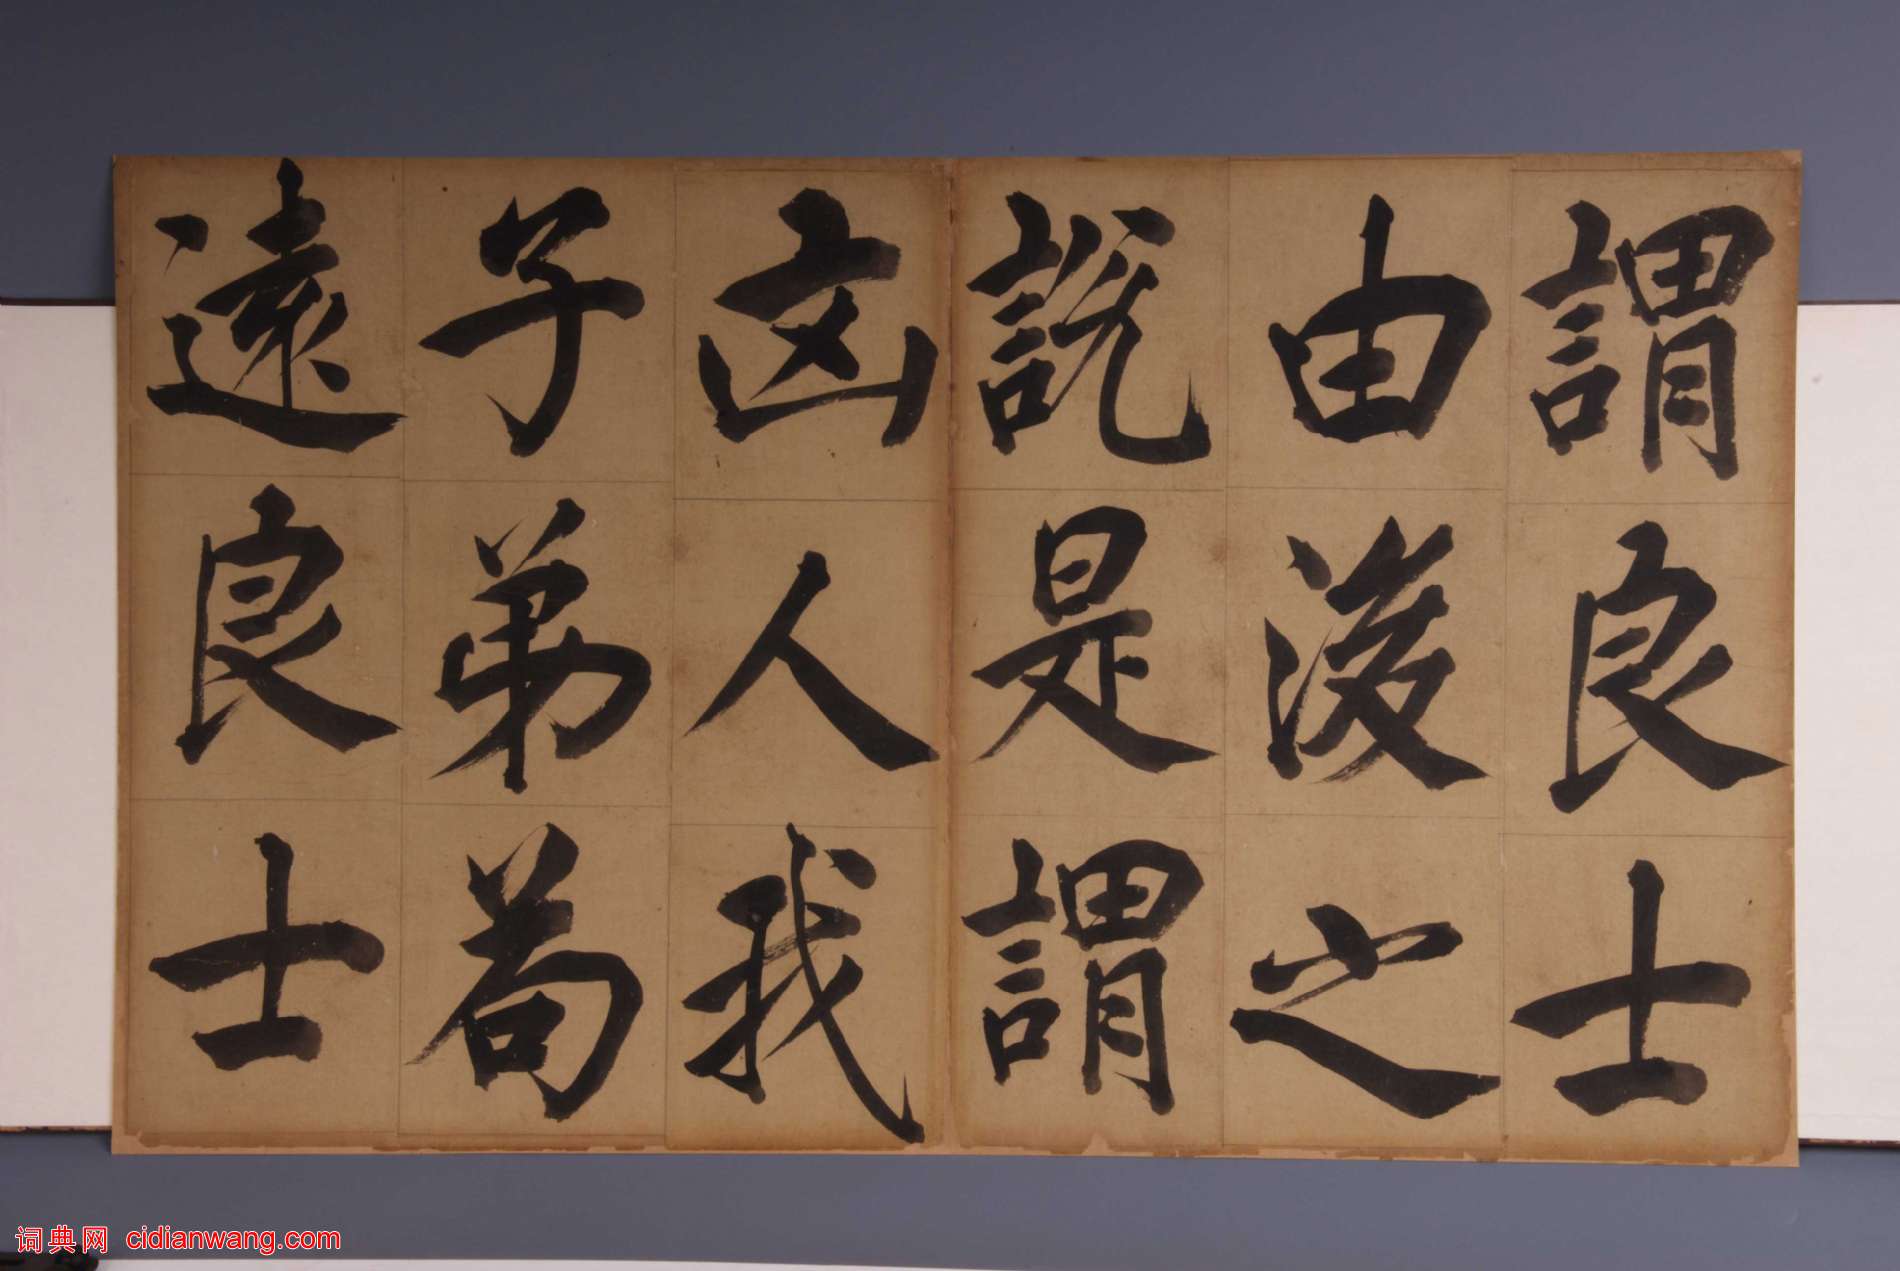 謂良士
由後之
説是謂
凶人我
子弟苟
遠良士
词典网 cidianwang.com